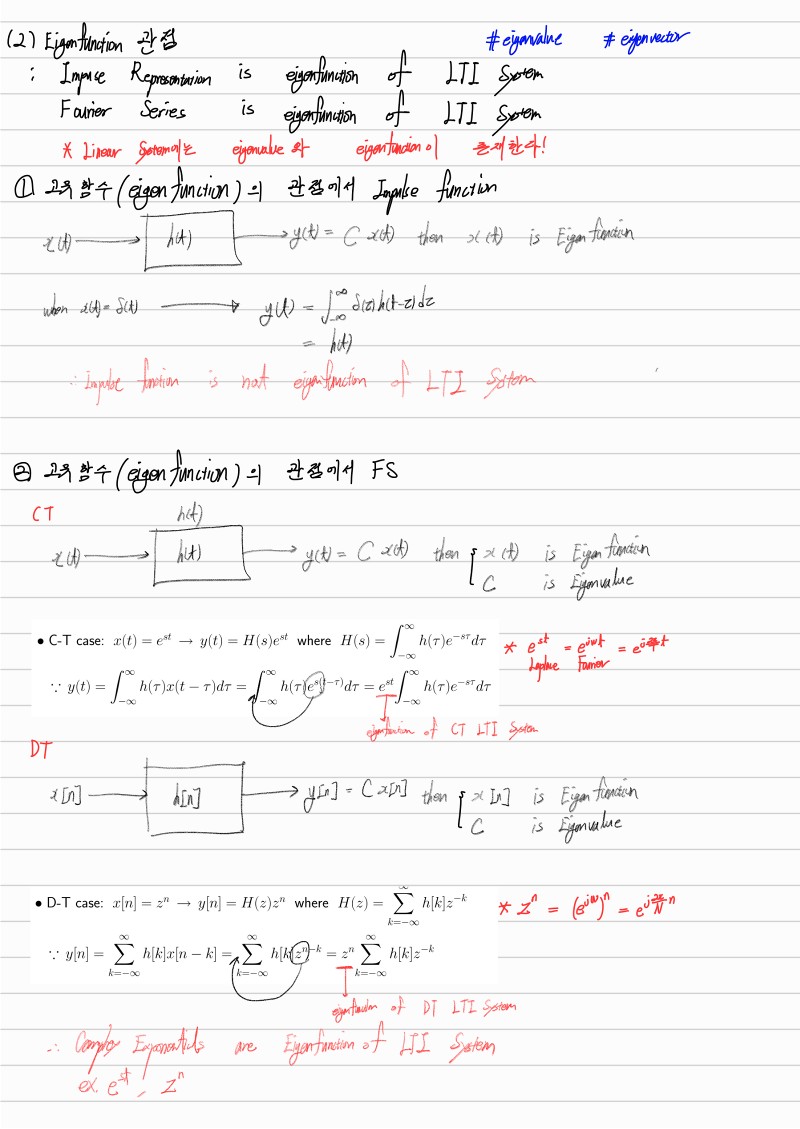 (2) Eigenfunction 관점 #eigenvalue #eigenvector
: Impulse Representation is eigenfunction of LTI System
Fourier Series is eigenfunction of LTI System
* Linear System에는 eigenvalue와 eigenfunction이 존재한다!
① 고유함수(eigenfunction)의 관점에서 Impulse function
x(t) → h(t) → y(t) = C x(t) then x(t) is Eigenfunction
when x(t) = δ(t) → y(t) = ∫_{-∞}^{∞} δ(τ)h(t-τ)dτ
= h(t)
∴ Impulse function is not eigenfunction of LTI System
② 고유함수(eigenfunction)의 관점에서 FS
CT h(t)
x(t) → h(t) → y(t) = C x(t) then { x(t) is Eigenfunction
C is Eigenvalue
• C-T case: x(t) = e^{st} → y(t) = H(s)e^{st} where H(s) = ∫_{-∞}^{∞} h(τ)e^{-sτ}dτ * e^{st} = e^{jωt} = e^{j
Laplace Fourier
∵ y(t) = ∫_{-∞}^{∞} h(τ)x(t-τ)dτ = ∫_{-∞}^{∞} h(τ)e^{s(t-τ)}dτ = e^{st}∫_{-∞}^{∞} h(τ)e^{-sτ}dτ
eigenfunction of CT LTI System
DT
x[n] → h[n] → y[n] = C x[n] then { x[n] is Eigenfunction
C is Eigenvalue
• D-T case: x[n] = z^n → y[n] = H(z)z^n where H(z) = ∑_{k=-∞}^{∞} h[k]z^{-k} * z^n = (e^{jω})^n = e^{j\frac{2π}{N}n}
∵ y[n] = ∑_{k=-∞}^{∞} h[k]x[n-k] = ∑_{k=-∞}^{∞} h[k]z^{n-k} = z^n ∑_{k=-∞}^{∞} h[k]z^{-k}
eigenfunction of DT LTI System
∴ Complex Exponentials are Eigenfunction of LTI System
ex. e^{st}, z^n